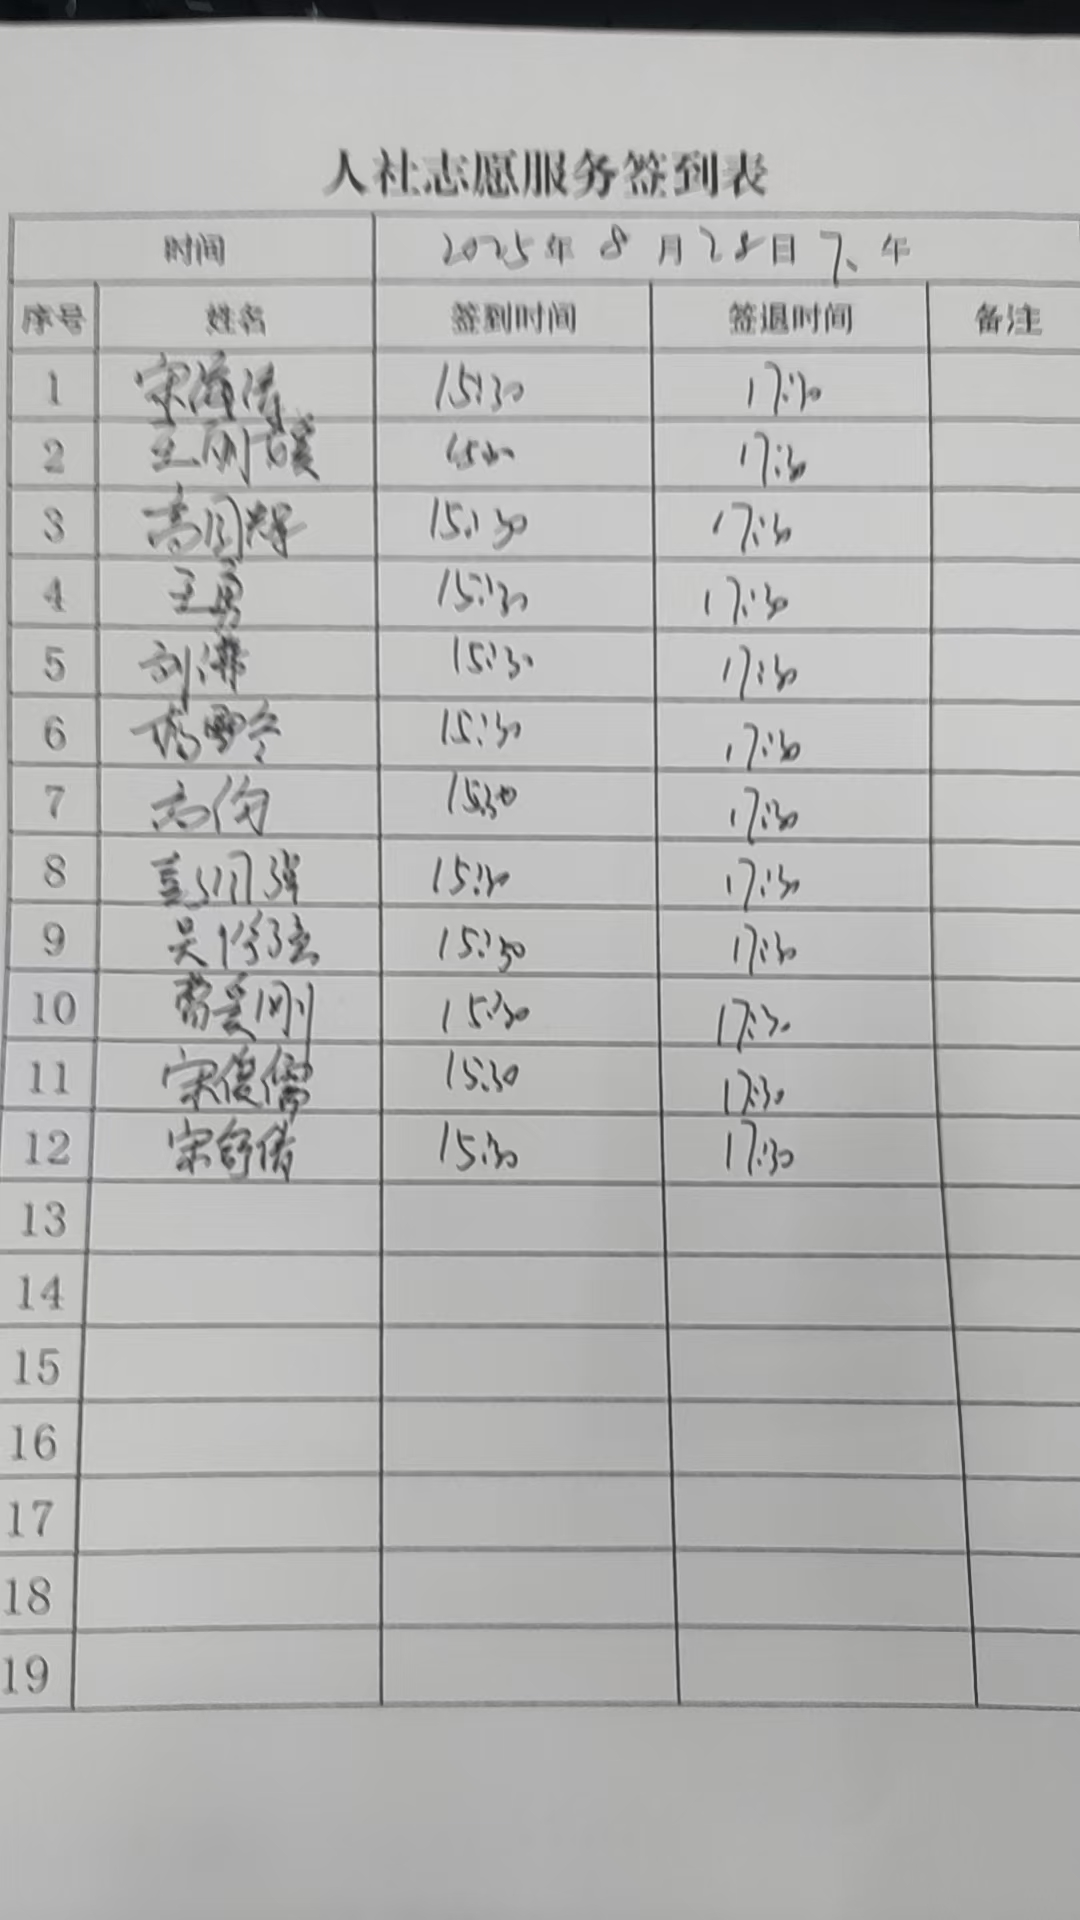 人社志愿服务签到表
时间 2025年 8 月 28日 下午
序号 姓名 签到时间 签退时间 备注
1 宋海涛 15:30 17:30
2 15:30 17:30
3 高国辉 15:30 17:30
4 王勇 15:30 17:30
5 刘沸 15:30 17:30
6 杨雪令 15:30 17:30
7 高俊 15:30 17:30
8 15:30 17:30
9 吴 15:30 17:30
10 曹爱刚 15:30 17:30
11 宋俊儒 15:30 17:30
12 宋舒倩 15:30 17:30
13
14
15
16
17
18
19